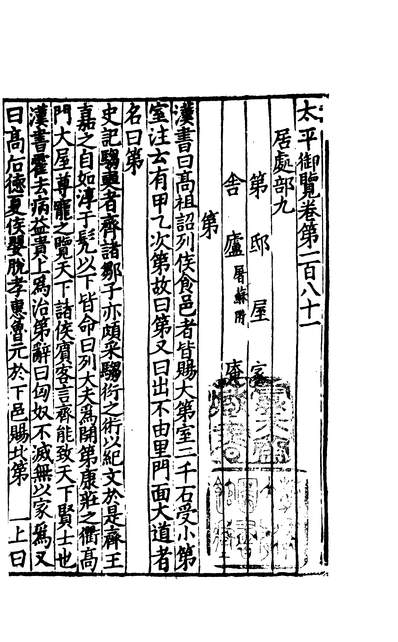 太平御覽卷第一百八十一
居處部九
第 邸 屋 家
舍 廬 屠蘇附 庵
第
漢書曰髙祖詔列侯食邑者皆賜大第室二千石受小第
室注云有甲乙次第故曰第又曰出不由里門面大道者
名曰第
史記騶奭者齊諸鄒子亦頗采騶衍之術以紀文於是齊王
嘉之自如淳于髠以下皆命曰列大夫爲開第康莊之衢髙
門大屋尊寵之覽天下諸侯賔客言齊能致天下賢士也
漢書霍去病益貴上爲治第辭曰匈奴不滅無以家爲又
曰髙后德夏侯嬰脫孝惠魯元於下邑賜北第 上曰